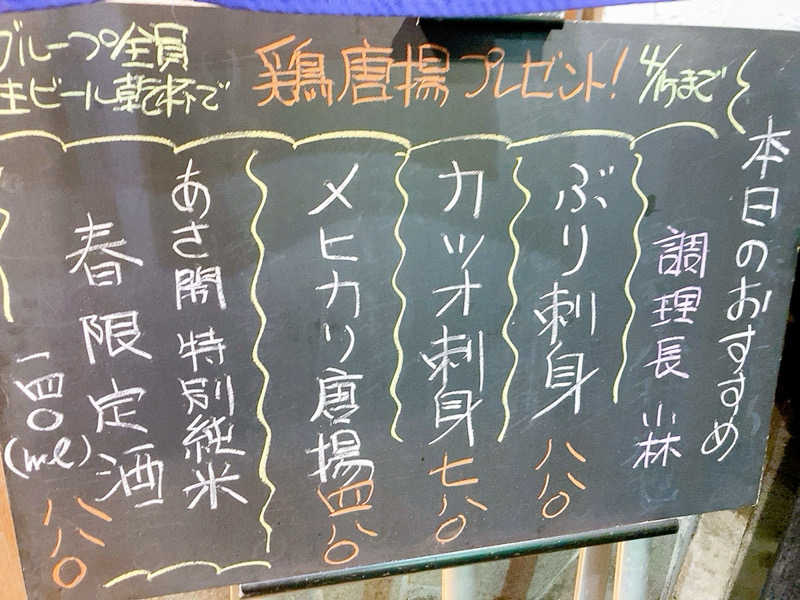 グループ全員
生ビール乾杯で
鶏唐揚プレゼント!
4/15まで
本日のおすすめ
調理長 小林
ぶり刺身 八八〇
カツオ刺身 七八〇
メヒカリ唐揚 四八〇
あさ開 特別純米
春限定酒 八八〇
一四〇(ml)